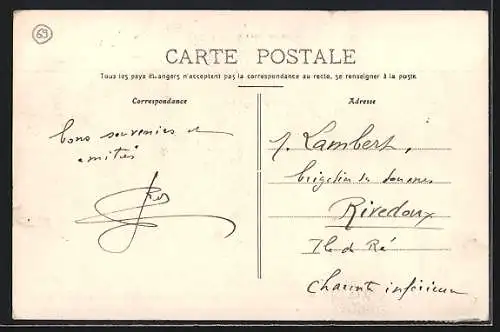 69
CARTE POSTALE
Tous les pays étrangers n'acceptent pas la correspondance au recto, se renseigner à la poste
Correspondance
Adresse
bons souvenirs et
amitiés
Lambert,
brigadier des douanes
Rivedoux
Ile de Ré
Charente inférieure